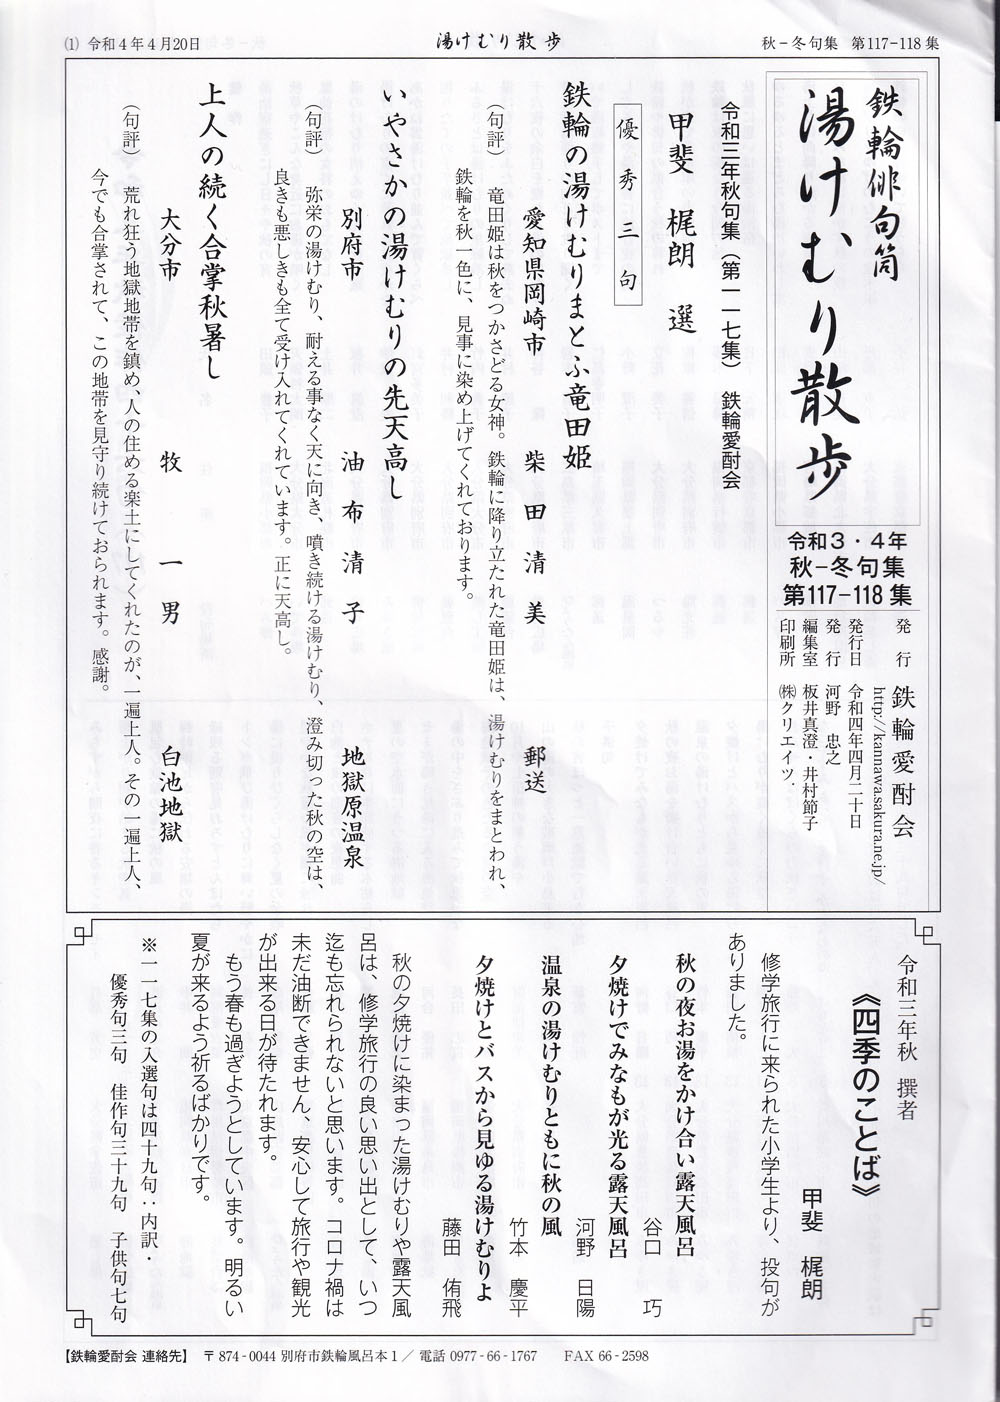 ⑴ 令和４年４月20日
湯けむり散歩
秋－冬句集　第117-118集
鉄輪俳句筒
湯けむり散歩
令和３・４年
秋－冬句集
第117－118集
発　行　鉄輪愛酎会
http://kannawa.sakura.ne.jp/
発行日　令和四年四月二十日
発　行　河野　忠之
編集室　板井真澄・井村節子
印刷所　㈱クリエイツ．
令和三年秋句集（第一一七集）　鉄輪愛酎会
甲斐　梶朗　選
優秀三句
鉄輪の湯けむりまとふ竜田姫
愛知県岡崎市　柴田清美　郵送
（句評）　竜田姫は秋をつかさどる女神。鉄輪に降り立たれた竜田姫は、湯けむりをまとわれ、
鉄輪を秋一色に、見事に染め上げてくれております。
いやさかの湯けむりの先天高し
別府市　油布清子　地獄原温泉
（句評）　弥栄の湯けむり、耐える事なく天に向き、噴き続ける湯けむり、澄み切った秋の空は、
良きも悪しきも全て受け入れてくれています。正に天高し。
上人の続く合掌秋暑し
大分市　牧一男　白池地獄
（句評）　荒れ狂う地獄地帯を鎮め、人の住める楽土にしてくれたのが、一遍上人。その一遍上人、
今でも合掌されて、この地帯を見守り続けておられます。感謝。
令和三年秋　撰者
《四季のことば》
甲斐　梶朗
修学旅行に来られた小学生より、投句が
ありました。
秋の夜お湯をかけ合い露天風呂
谷口　巧
夕焼けでみなもが光る露天風呂
河野　日陽
温泉の湯けむりともに秋の風
竹本　慶平
夕焼けとバスから見ゆる湯けむりよ
藤田　侑飛
秋の夕焼けに染まった湯けむりや露天風
呂は、修学旅行の良い思い出として、いつ
迄も忘れられないと思います。コロナ禍は
未だ油断できません、安心して旅行や観光
が出来る日が待たれます。
もう春も過ぎようとしています。明るい
夏が来るよう祈るばかりです。
※一一七集の入選句は四十九句：内訳・
優秀句三句　佳作句三十九句　子供句七句
【鉄輪愛酎会 連絡先】　〒874-0044 別府市鉄輪風呂本１／ 電話 0977-66-1767　FAX 66-2598